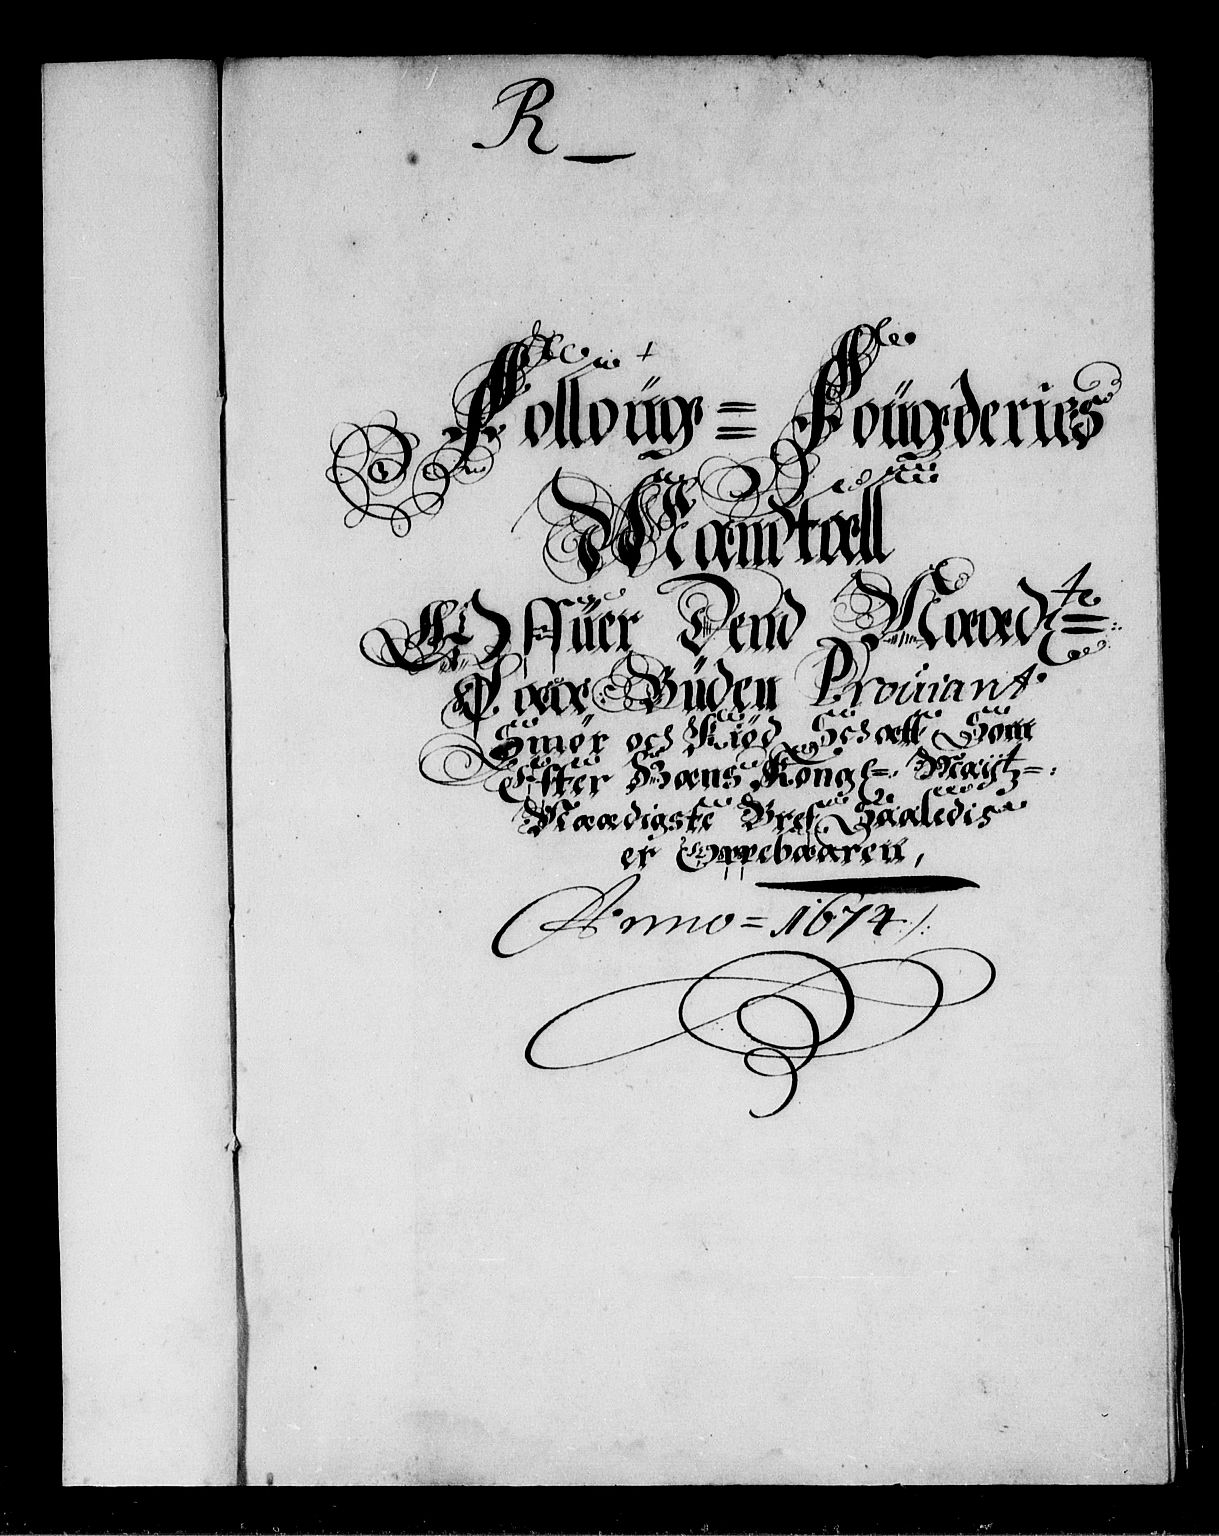 R
Folloüg = Fougderies
Mandtall
Offüer Dend Naad=
Paa Büden Prouiant
Smör och Kiød Schatt Som
Efter Hans Kongl=: Maytz=:
Naadigste Bref Saaledis
er Oppebaaren,
Anno = 1674 /: